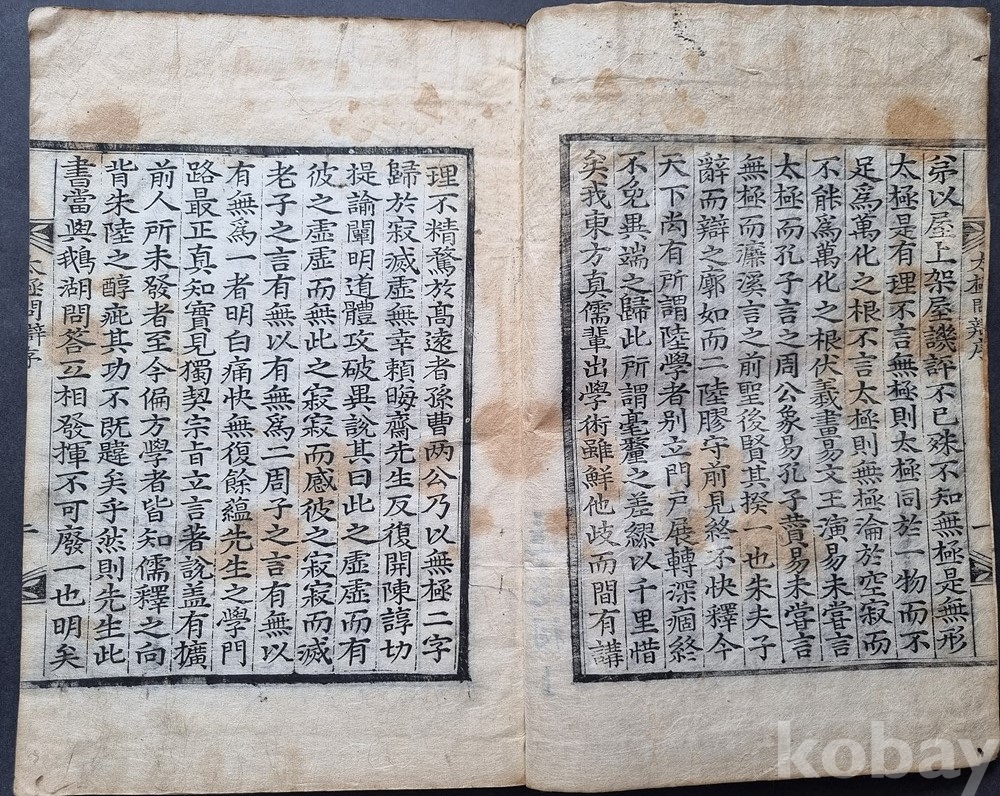 太極問辯序
一
弟以屋上架屋譏評不已殊不知無極是無形
太極是有理不言無極則太極同於一物而不
足爲萬化之根不言太極則無極淪於空寂而
不能爲萬化之根伏羲畫易文王演易未嘗言
太極而孔子言之周公象易孔子賛易未嘗言
無極而濂溪言之前聖後賢其揆一也朱夫子
辭而辯之廓如而二陸膠守前見終不快釋今
天下尚有所謂陸學者別立門戶展轉深痼終
不免異端之歸此所謂毫釐之差繆以千里惜
矣我東方眞儒輩出學術雖鮮他歧而間有講
理不精騖於高遠者孫曹两公乃以無極二字
歸於寂滅虛無幸賴晦齋先生反復開陳諄切
提諭闡明道體攻破異說其曰此之虛虛而有
彼之虛虛而無此之寂寂而感彼之寂寂而滅
老子之言有無以有無爲二周子之言有無以
有無爲一者明白痛快無復餘蘊先生之學門
路最正真知實見獨契宗旨立言著說盖有擴
前人所未發者至今偏方學者皆知儒釋之向
背朱陸之醇疵其功不旣韙矣乎然則先生此
書當與鵝湖問答互相發揮不可廢一也明矣
太極問辯序
二
kobay